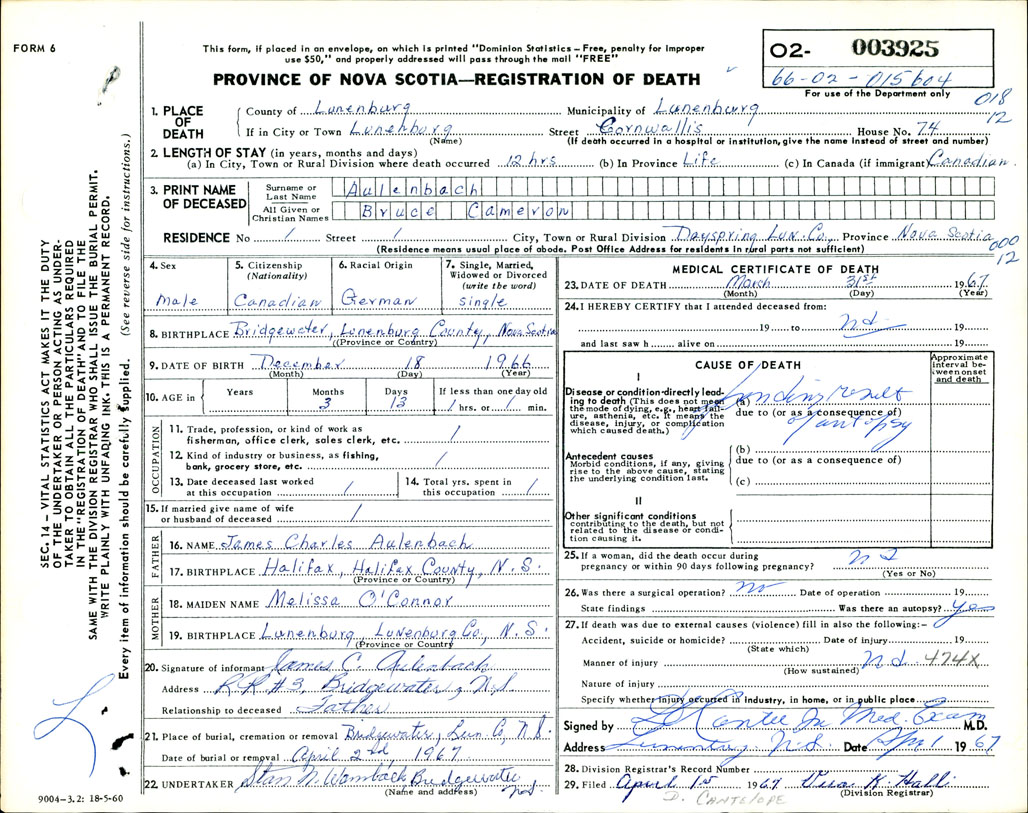 FORM 6
This form, if placed in an envelope, on which is printed "Dominion Statistics—Free, penalty for improper
use $50," and properly addressed will pass through the mail "FREE"
PROVINCE OF NOVA SCOTIA—REGISTRATION OF DEATH
O2- 003925
66-02-015604
For use of the Department only
018
12
1. PLACE OF DEATH
County of Lunenburg Municipality of Lunenburg
If in City or Town Lunenburg Street Cornwallis House No. 74
(Name) (If death occurred in a hospital or institution, give the name instead of street and number)
2. LENGTH OF STAY (in years, months and days)
(a) In City, Town or Rural Division where death occurred 12 hrs (b) In Province Life (c) In Canada (if immigrant) Canadian
3. PRINT NAME OF DECEASED
Surname or Last Name Aulenbach
All Given or Christian Names Bruce Cameron
RESIDENCE No / Street / City, Town or Rural Division Dayspring Lun. Co., Province Nova Scotia
(Residence means usual place of abode. Post Office Address for residents in rural parts not sufficient)
000
12
4. Sex Male
5. Citizenship (Nationality) Canadian
6. Racial Origin German
7. Single, Married, Widowed or Divorced (write the word) Single
8. BIRTHPLACE Bridgewater, Lunenburg County, Nova Scotia
(Province or Country)
9. DATE OF BIRTH December 18 1966
(Month) (Day) (Year)
10. AGE in Years Months 3 Days 13 If less than one day old / hrs. or / min.
OCCUPATION
11. Trade, profession, or kind of work as fisherman, office clerk, sales clerk, etc. /
12. Kind of industry or business, as fishing, bank, grocery store, etc. /
13. Date deceased last worked at this occupation /
14. Total yrs. spent in this occupation /
15. If married give name of wife or husband of deceased /
FATHER
16. NAME James Charles Aulenbach
17. BIRTHPLACE Halifax, Halifax County, N.S.
(Province or Country)
MOTHER
18. MAIDEN NAME Melissa O'Connor
19. BIRTHPLACE Lunenburg, Lunenburg Co., N.S.
(Province or Country)
20. Signature of informant James C. Aulenbach
Address R.R #3, Bridgewater, N.S
Relationship to deceased Father
21. Place of burial, cremation or removal Bridgewater, Lun. Co, N.S.
Date of burial or removal April 2nd 1967
22. UNDERTAKER Stan N. Wamback, Bridgewater N.S.
(Name and address)
MEDICAL CERTIFICATE OF DEATH
23. DATE OF DEATH March 31st 1967
(Month) (Day) (Year)
24. I HEREBY CERTIFY that I attended deceased from:
19 to 19
and last saw h alive on 19
CAUSE OF DEATH
Approximate interval between onset and death
I
Disease or condition directly leading to death (This does not mean the mode of dying, e.g., heart failure, asthenia, etc. It means the disease, injury, or complication which caused death.)
(a) pending result
due to (or as a consequence of)
of autopsy
Antecedent causes
Morbid conditions, if any, giving rise to the above cause, stating the underlying condition last.
(b)
due to (or as a consequence of)
(c)
II
Other significant conditions
contributing to the death, but not related to the disease or condition causing it.
25. If a woman, did the death occur during pregnancy or within 90 days following pregnancy?
(Yes or No)
26. Was there a surgical operation? no Date of operation 19
State findings Was there an autopsy? yes
27. If death was due to external causes (violence) fill in also the following:—
Accident, suicide or homicide? Date of injury 19
(State which)
Manner of injury 474X
(How sustained)
Nature of injury
Specify whether injury occurred in industry, in home, or in public place
Signed by Med. Exam M.D.
Address N.S. Date Apr 1 1967
28. Division Registrar's Record Number
29. Filed April 1st 1967
(Division Registrar)
D. CANTELOPE
SEC. 14—VITAL STATISTICS ACT MAKES IT THE DUTY
OF THE UNDERTAKER OR PERSON ACTING AS UNDER-
TAKER TO OBTAIN ALL THE PARTICULARS REQUIRED
IN THE "REGISTRATION OF DEATH" AND TO FILE THE
SAME WITH THE DIVISION REGISTRAR WHO SHALL ISSUE THE BURIAL PERMIT.
WRITE PLAINLY WITH UNFADING INK. THIS IS A PERMANENT RECORD.
Every item of information should be carefully supplied. (See reverse side for instructions.)
9004-3.2: 18-5-60